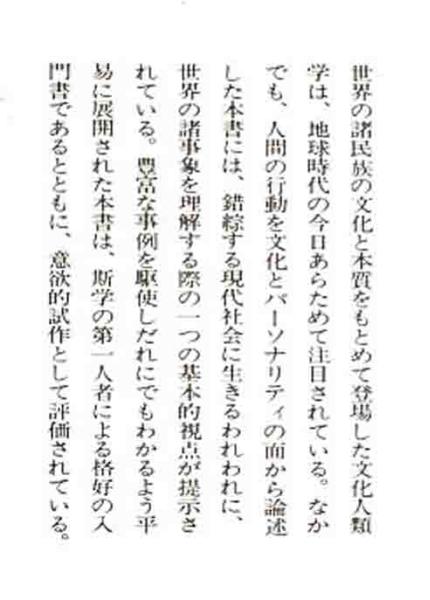 世界の諸民族の文化と本質をもとめて登場した文化人類
学は、地球時代の今日あらためて注目されている。なか
でも、人間の行動を文化とパーソナリティの面から論述
した本書には、錯綜する現代社会に生きるわれわれに、
世界の諸事象を理解する際の一つの基本的視点が提示さ
れている。豊富な事例を駆使しだれにでもわかるよう平
易に展開された本書は、斯学の第一人者による格好の入
門書であるとともに、意欲的試作として評価されている。